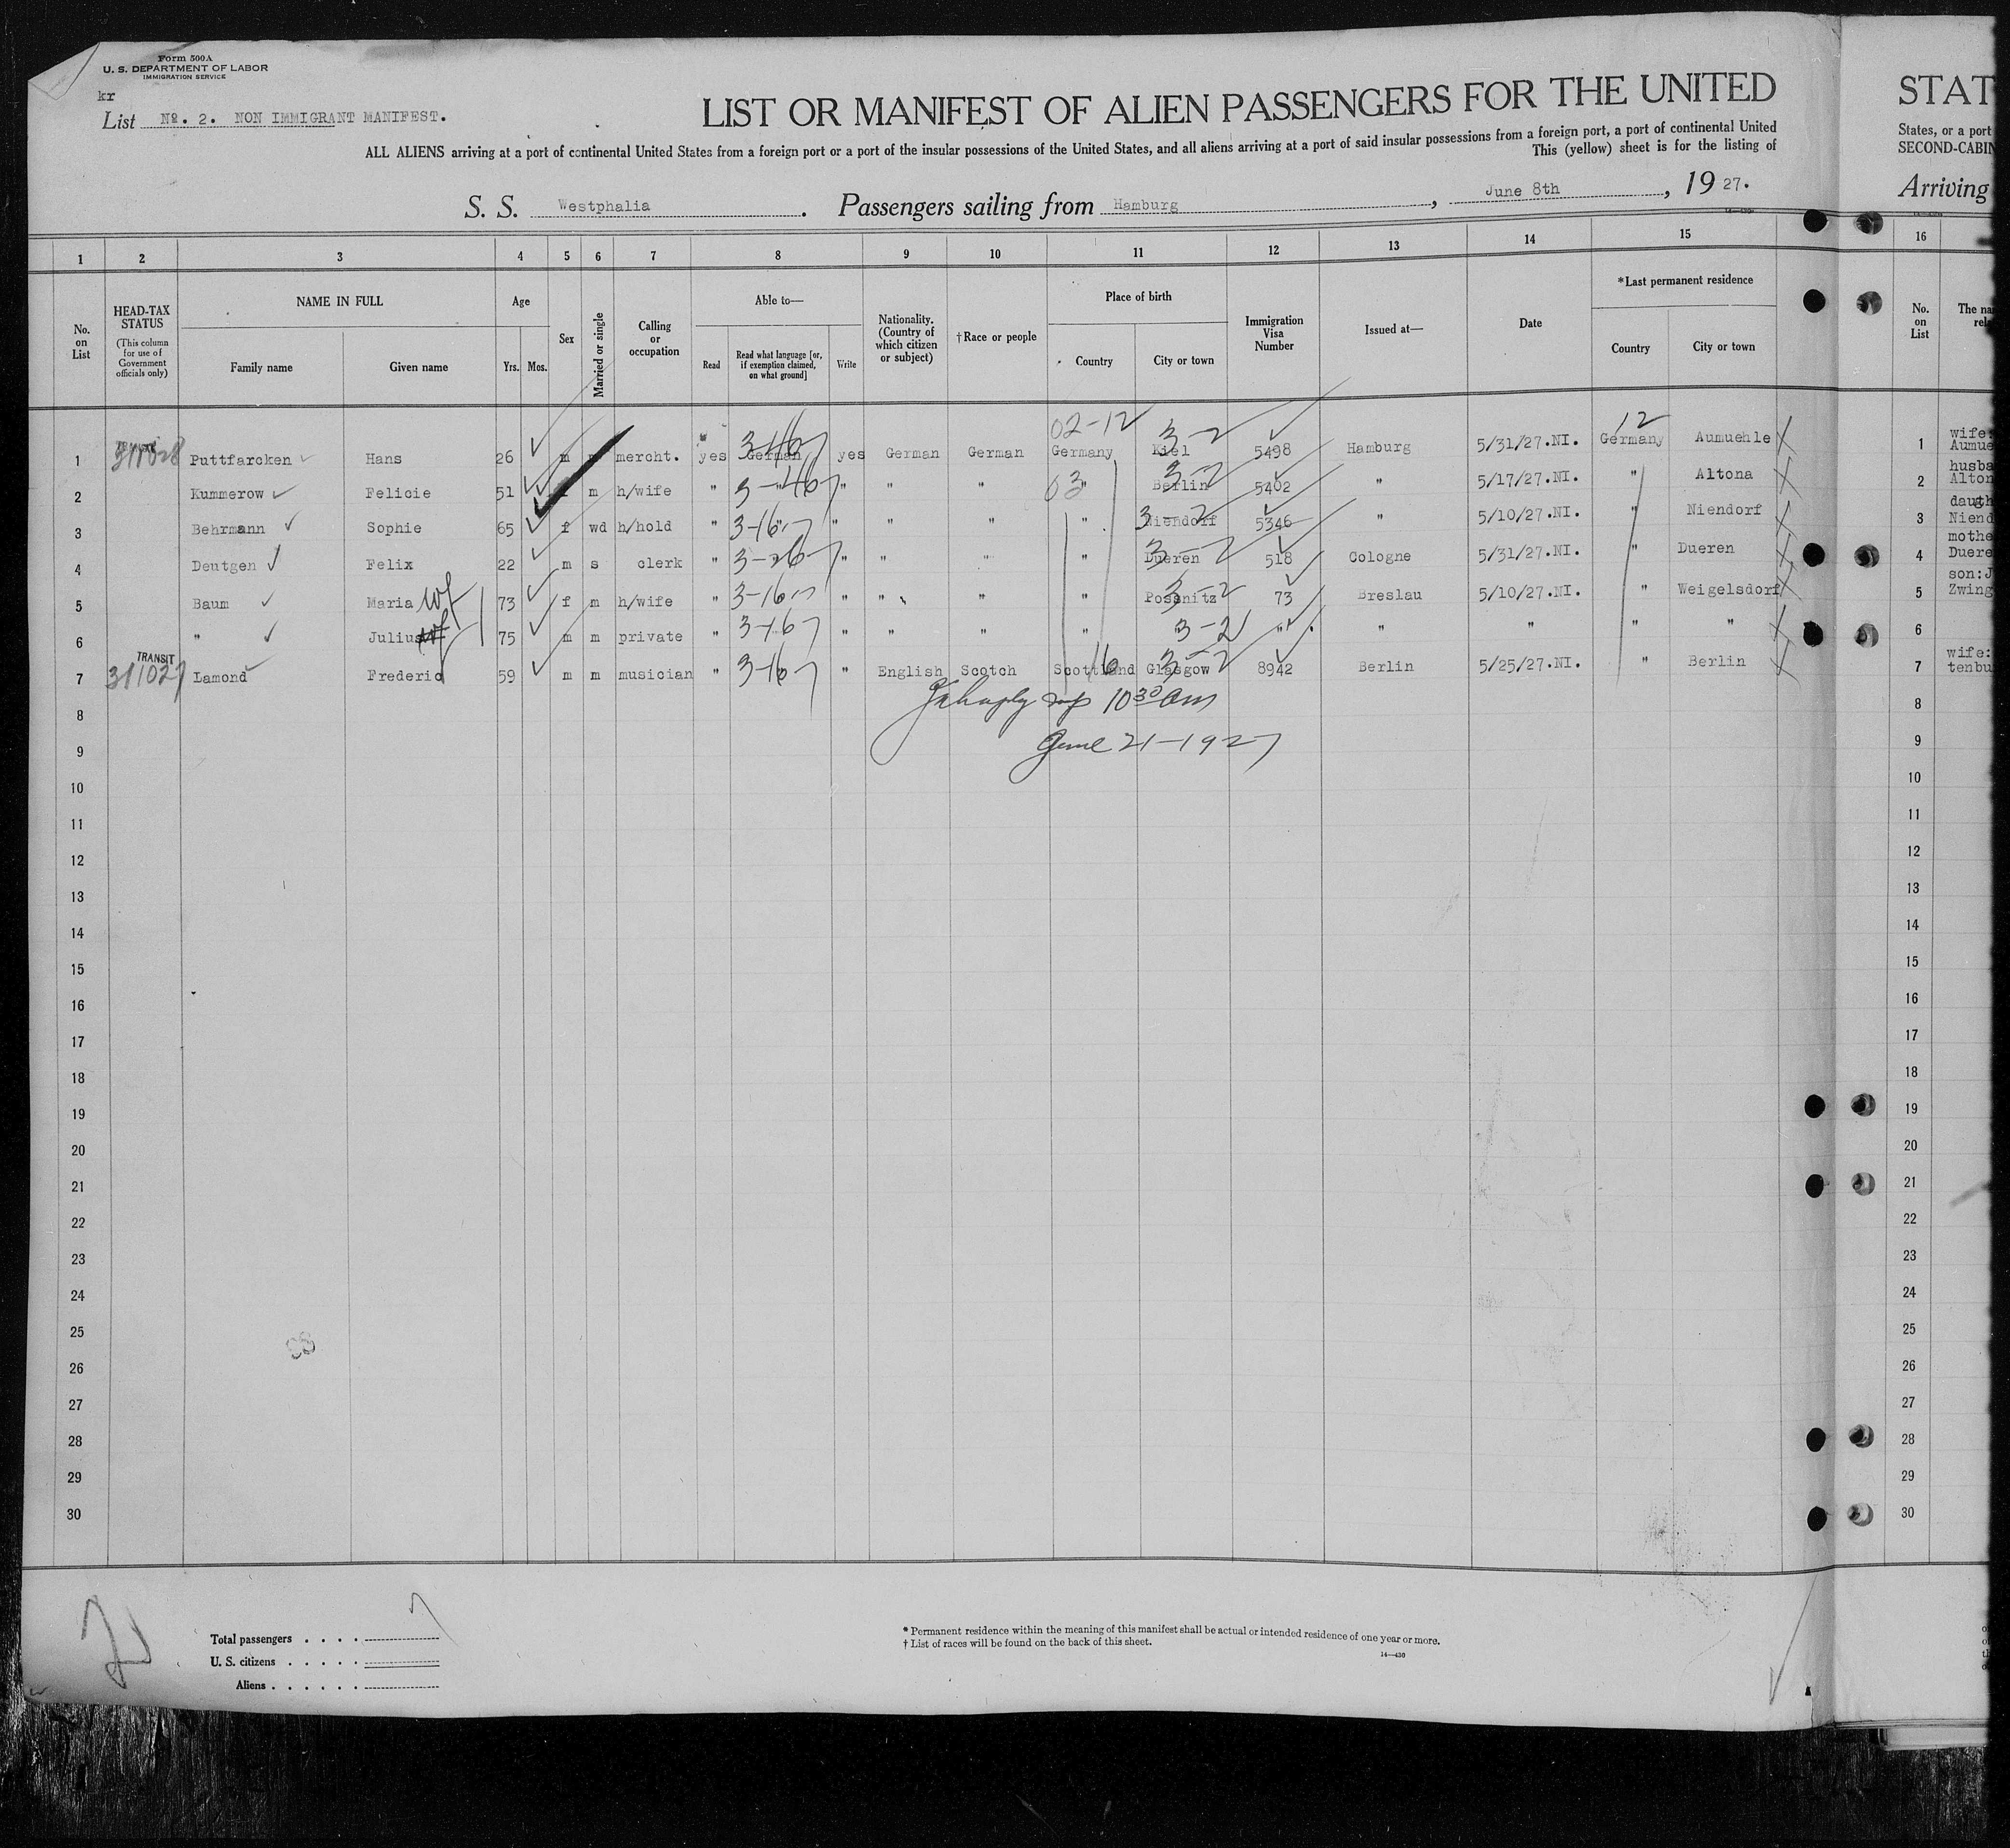 Form 500A
U. S. DEPARTMENT OF LABOR
IMMIGRATION SERVICE
kr
List No. 2. NON IMMIGRANT MANIFEST.
LIST OR MANIFEST OF ALIEN PASSENGERS FOR THE UNITED
ALL ALIENS arriving at a port of continental United States from a foreign port or a port of the insular possessions of the United States, and all aliens arriving at a port of said insular possessions from a foreign port, a port of continental United
This (yellow) sheet is for the listing of
S. S. Westphalia. Passengers sailing from Hamburg, June 8th, 1927.
STAT
States, or a port
SECOND-CABIN
Arriving
1 2 3 4 5 6 7 8 9 10 11 12 13 14 15 16
No. on List
HEAD-TAX STATUS
(This column for use of Government officials only)
NAME IN FULL
Family name Given name
Age
Yrs. Mos.
Sex
Married or single
Calling or occupation
Able to—
Read
Read what language [or, if exemption claimed, on what ground]
Write
Nationality. (Country of which citizen or subject)
†Race or people
Place of birth
Country City or town
Immigration Visa Number
Issued at—
Date
*Last permanent residence
Country City or town
No. on List
The na
rel
02-12 12
1 Puttfarcken Hans 26 m mercht. yes German 3-16 yes German German Germany Kiel 3-2 5498 Hamburg 5/31/27.NI. Germany Aumuehle 1 wife: Aumue
2 Kummerow Felicie 51 m h/wife " " " " " 03 " Berlin 3-2 5402 " 5/17/27.NI. " Altona 2 husba Alton
3 Behrmann Sophie 65 f wd h/hold " " 3-16 " " " " Niendorf 3-2 5346 " 5/10/27.NI. " Niendorf 3 daugh Niend
4 Deutgen Felix 22 m s clerk " " " " " Dueren 3-2 518 Cologne 5/31/27.NI. " Dueren 4 mothe Duere
5 Baum Maria wf 73 f m h/wife " 3-16 " " " " " 3-2 73 Breslau 5/10/27.NI. " Weigelsdorf 5 son:J Zwing
6 " Julius 75 m m private " 3-16 " " " " " 3-2 " " " " " 6
TRANSIT
7 311027 Lamond Frederic 59 m m musician " 3-16 " English Scotch Scotland 16 Glasgow 3-2 8942 Berlin 5/25/27.NI. " Berlin 7 wife: tenbu
10 30 am
June 21-1927
8 8
9 9
10 10
11 11
12 12
13 13
14 14
15 15
16 16
17 17
18 18
19 19
20 20
21 21
22 22
23 23
24 24
25 25
26 26
27 27
28 28
29 29
30 30
Total passengers . . . . 7
U. S. citizens . . . . .
Aliens . . . . . .
* Permanent residence within the meaning of this manifest shall be actual or intended residence of one year or more.
† List of races will be found on the back of this sheet.
14—430